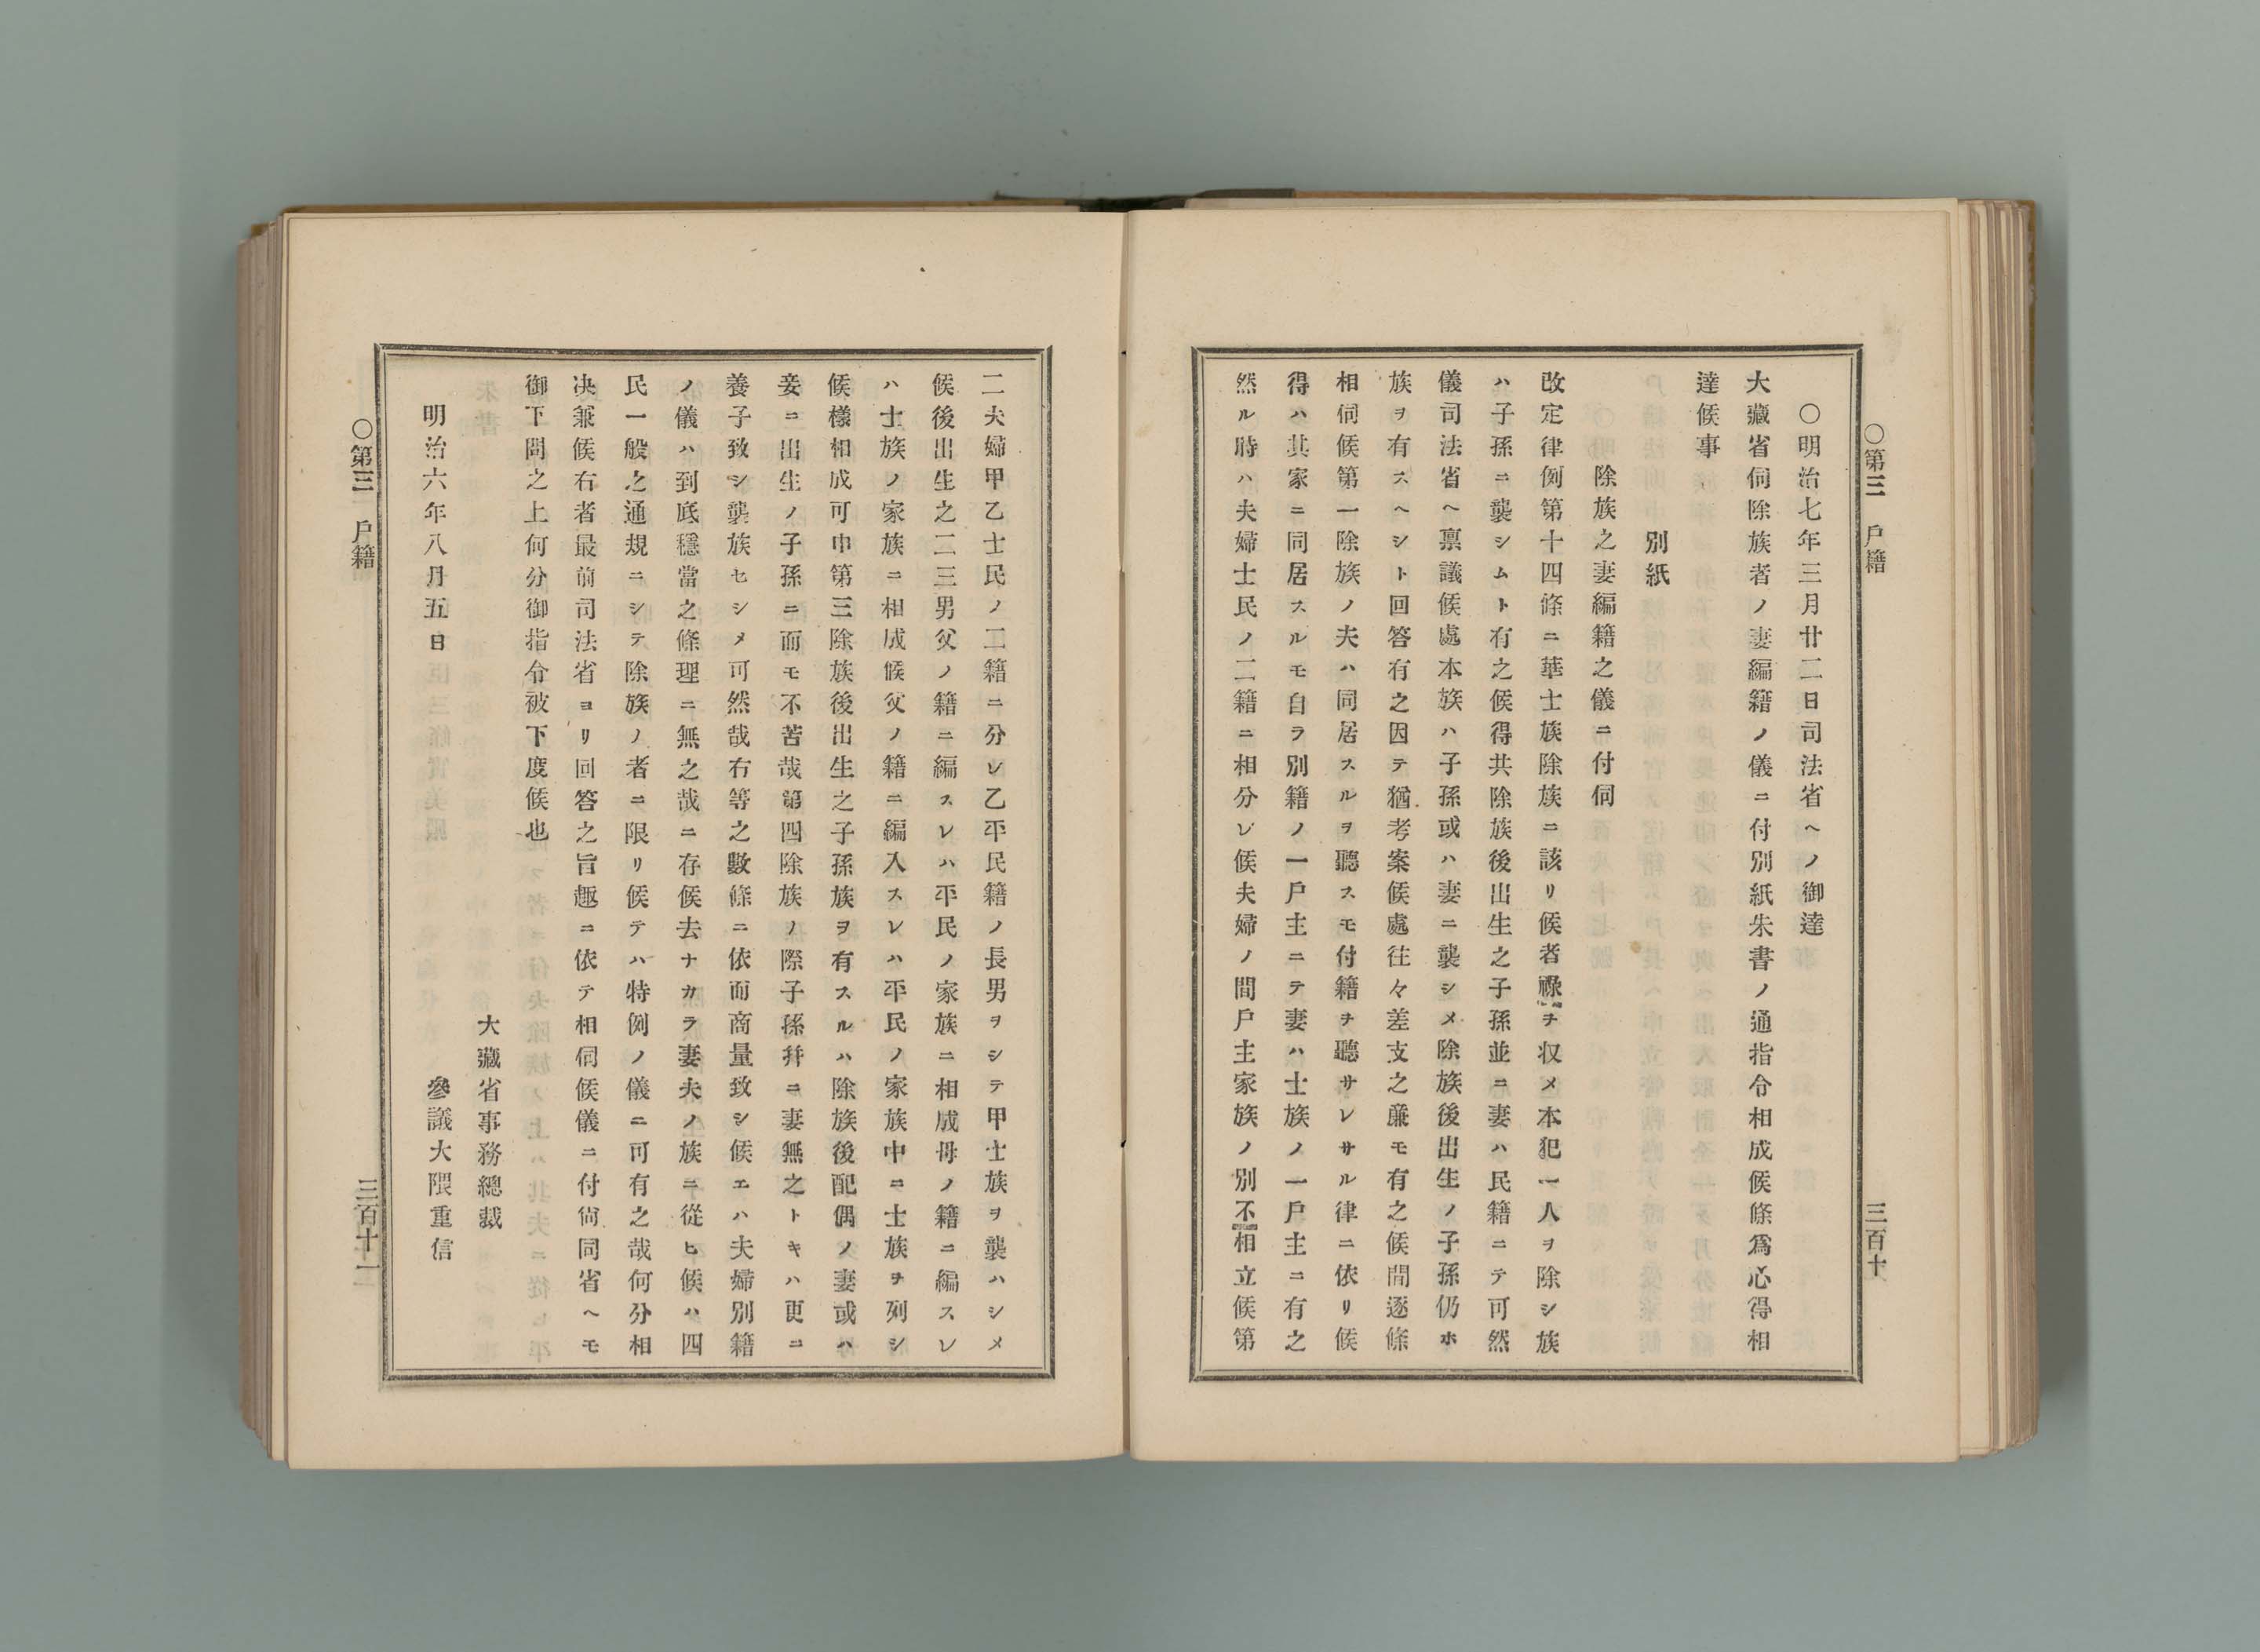 ○第三　戸籍
三百十
○明治七年三月廿二日司法省ヘノ御達
大藏省伺除族者ノ妻編籍ノ儀ニ付別紙朱書ノ通指令相成候條爲心得相
達候事
別紙
除族之妻編籍之儀ニ付伺
改定律例第十四條ニ華士族除族ニ該リ候者祿ヲ収メ本犯一人ヲ除シ族
ハ子孫ニ襲シムト有之候得共除族後出生之子孫並ニ妻ハ民籍ニテ可然
儀司法省ヘ禀議候處本族ハ子孫或ハ妻ニ襲シメ除族後出生ノ子孫仍ホ
族ヲ有スヘシト回答有之因テ猶考案候處往々差支之廉モ有之候間逐條
相伺候第一除族ノ夫ハ同居スルヲ聽スモ付籍ヲ聽サレサル律ニ依リ候
得ハ其家ニ同居スルモ自ラ別籍ノ一戸主ニテ妻ハ士族ノ一戸主ニ有之
然ル時ハ夫婦士民ノ二籍ニ相分レ候夫婦ノ間戸主家族ノ別不相立候第
二夫婦甲乙士民ノ二籍ニ分レ乙平民籍ノ長男ヲシテ甲士族ヲ襲ハシメ
候後出生之二三男父ノ籍ニ編スレハ平民ノ家族ニ相成母ノ籍ニ編スレ
ハ士族ノ家族ニ相成候父ノ籍ニ編入スレハ平民ノ家族中ニ士族ヲ列シ
候樣相成可申第三除族後出生之子孫族ヲ有スルハ除族後配偶ノ妻或ハ
妾ニ出生ノ子孫ニ而モ不苦哉第四除族ノ際子孫幷ニ妻無之トキハ更ニ
養子致シ襲族セシメ可然哉右等之數條ニ依而商量致シ候エハ夫婦別籍
ノ儀ハ到底穩當之條理ニ無之哉ニ存候去ナカラ妻夫ノ族ニ從ヒ候ハ四
民一般之通規ニシテ除族ノ者ニ限リ候テハ特例ノ儀ニ可有之哉何分相
决兼候右者最前司法省ヨリ回答之旨趣ニ依テ相伺候儀ニ付尙同省ヘモ
御下問之上何分御指令被下度候也
大藏省事務總裁
明治六年八月五日　參議大隈重信
○第三　戸籍
三百十一